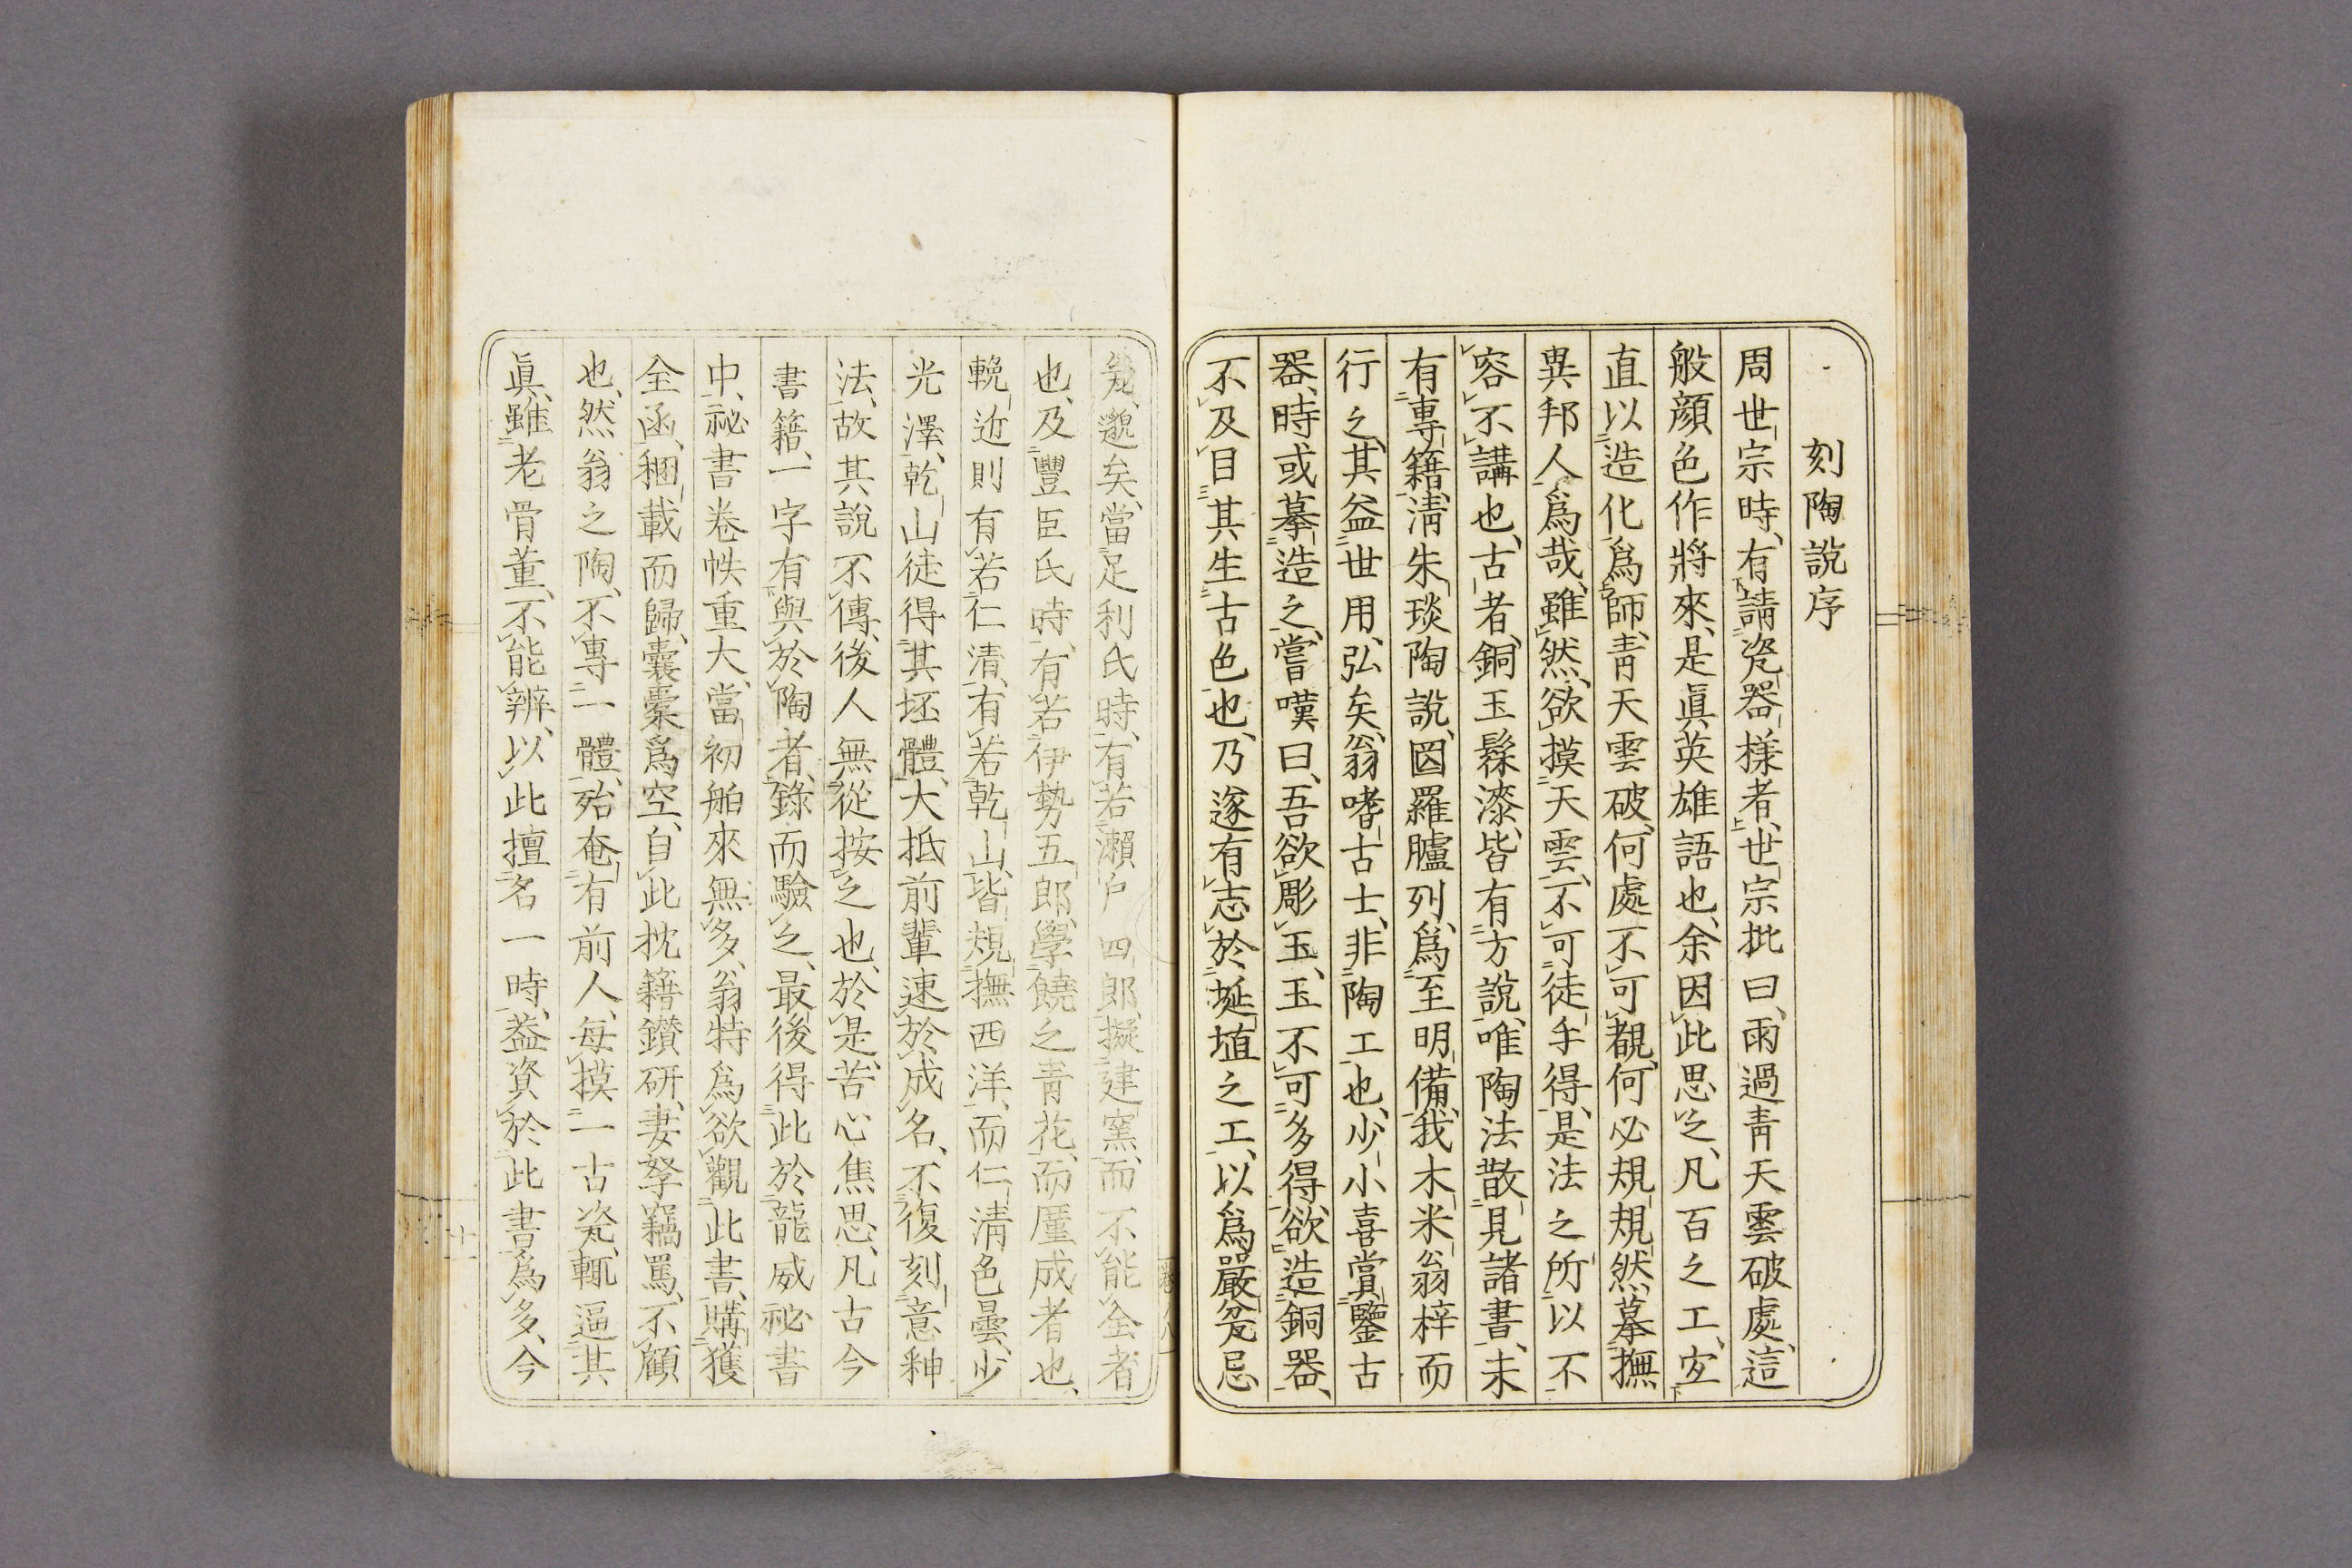 刻陶說序
周世宗時、有請瓷器樣者、世宗批曰、雨過青天雲破處、這
般顔色作將來、是眞英雄語也、余因此思之、凡百之工、宜
直以造化爲師、青天雲破、何處不可覩、何必規規然摹撫
異邦人爲哉、雖然、欲摸天雲、不可徒手得、是法之所以不
容不講也、古者、銅玉髹漆、皆有方說、唯陶法散見諸書、未
有專籍、淸朱琰陶說、囡羅臚列、爲至明備、我木米翁梓而
行之、其益世用、弘矣、翁嗜古士、非陶工也、少小喜賞鑒古
器、時或摹造之、嘗嘆曰、吾欲彫玉、玉不可多得、欲造銅器、
不及目其生古色也、乃遂有志於埏埴之工、以爲嚴
忌
邈矣、當足利氏時、有若瀨戶四郎、擬建窯、而不能全者
也、及豐臣氏時、有若伊勢五郎、學饒之青花、而厪成者也、
輓近則有若仁清、有若乾山、皆規撫西洋、而仁清色曇、少
光澤、乾山徒得其坯體、大抵前輩速於成名、不復刻意神
法、故其說不傳、後人無從按之也、於是苦心焦思、凡古今
書籍、一字有與於陶者、錄而驗之、最後得此於龍威祕書
中、祕書卷帙重大、當初舶來無多、翁特爲欲觀此書、購獲
全函、稛載而歸、囊橐爲空、自此枕籍鑽研、妻孥竊罵、不顧
也、然翁之陶、不專一體、殆奄有前人、每摸一古瓷、輒逼其
眞、雖老骨董、不能辨、以此擅名一時、益資於此書爲多、今